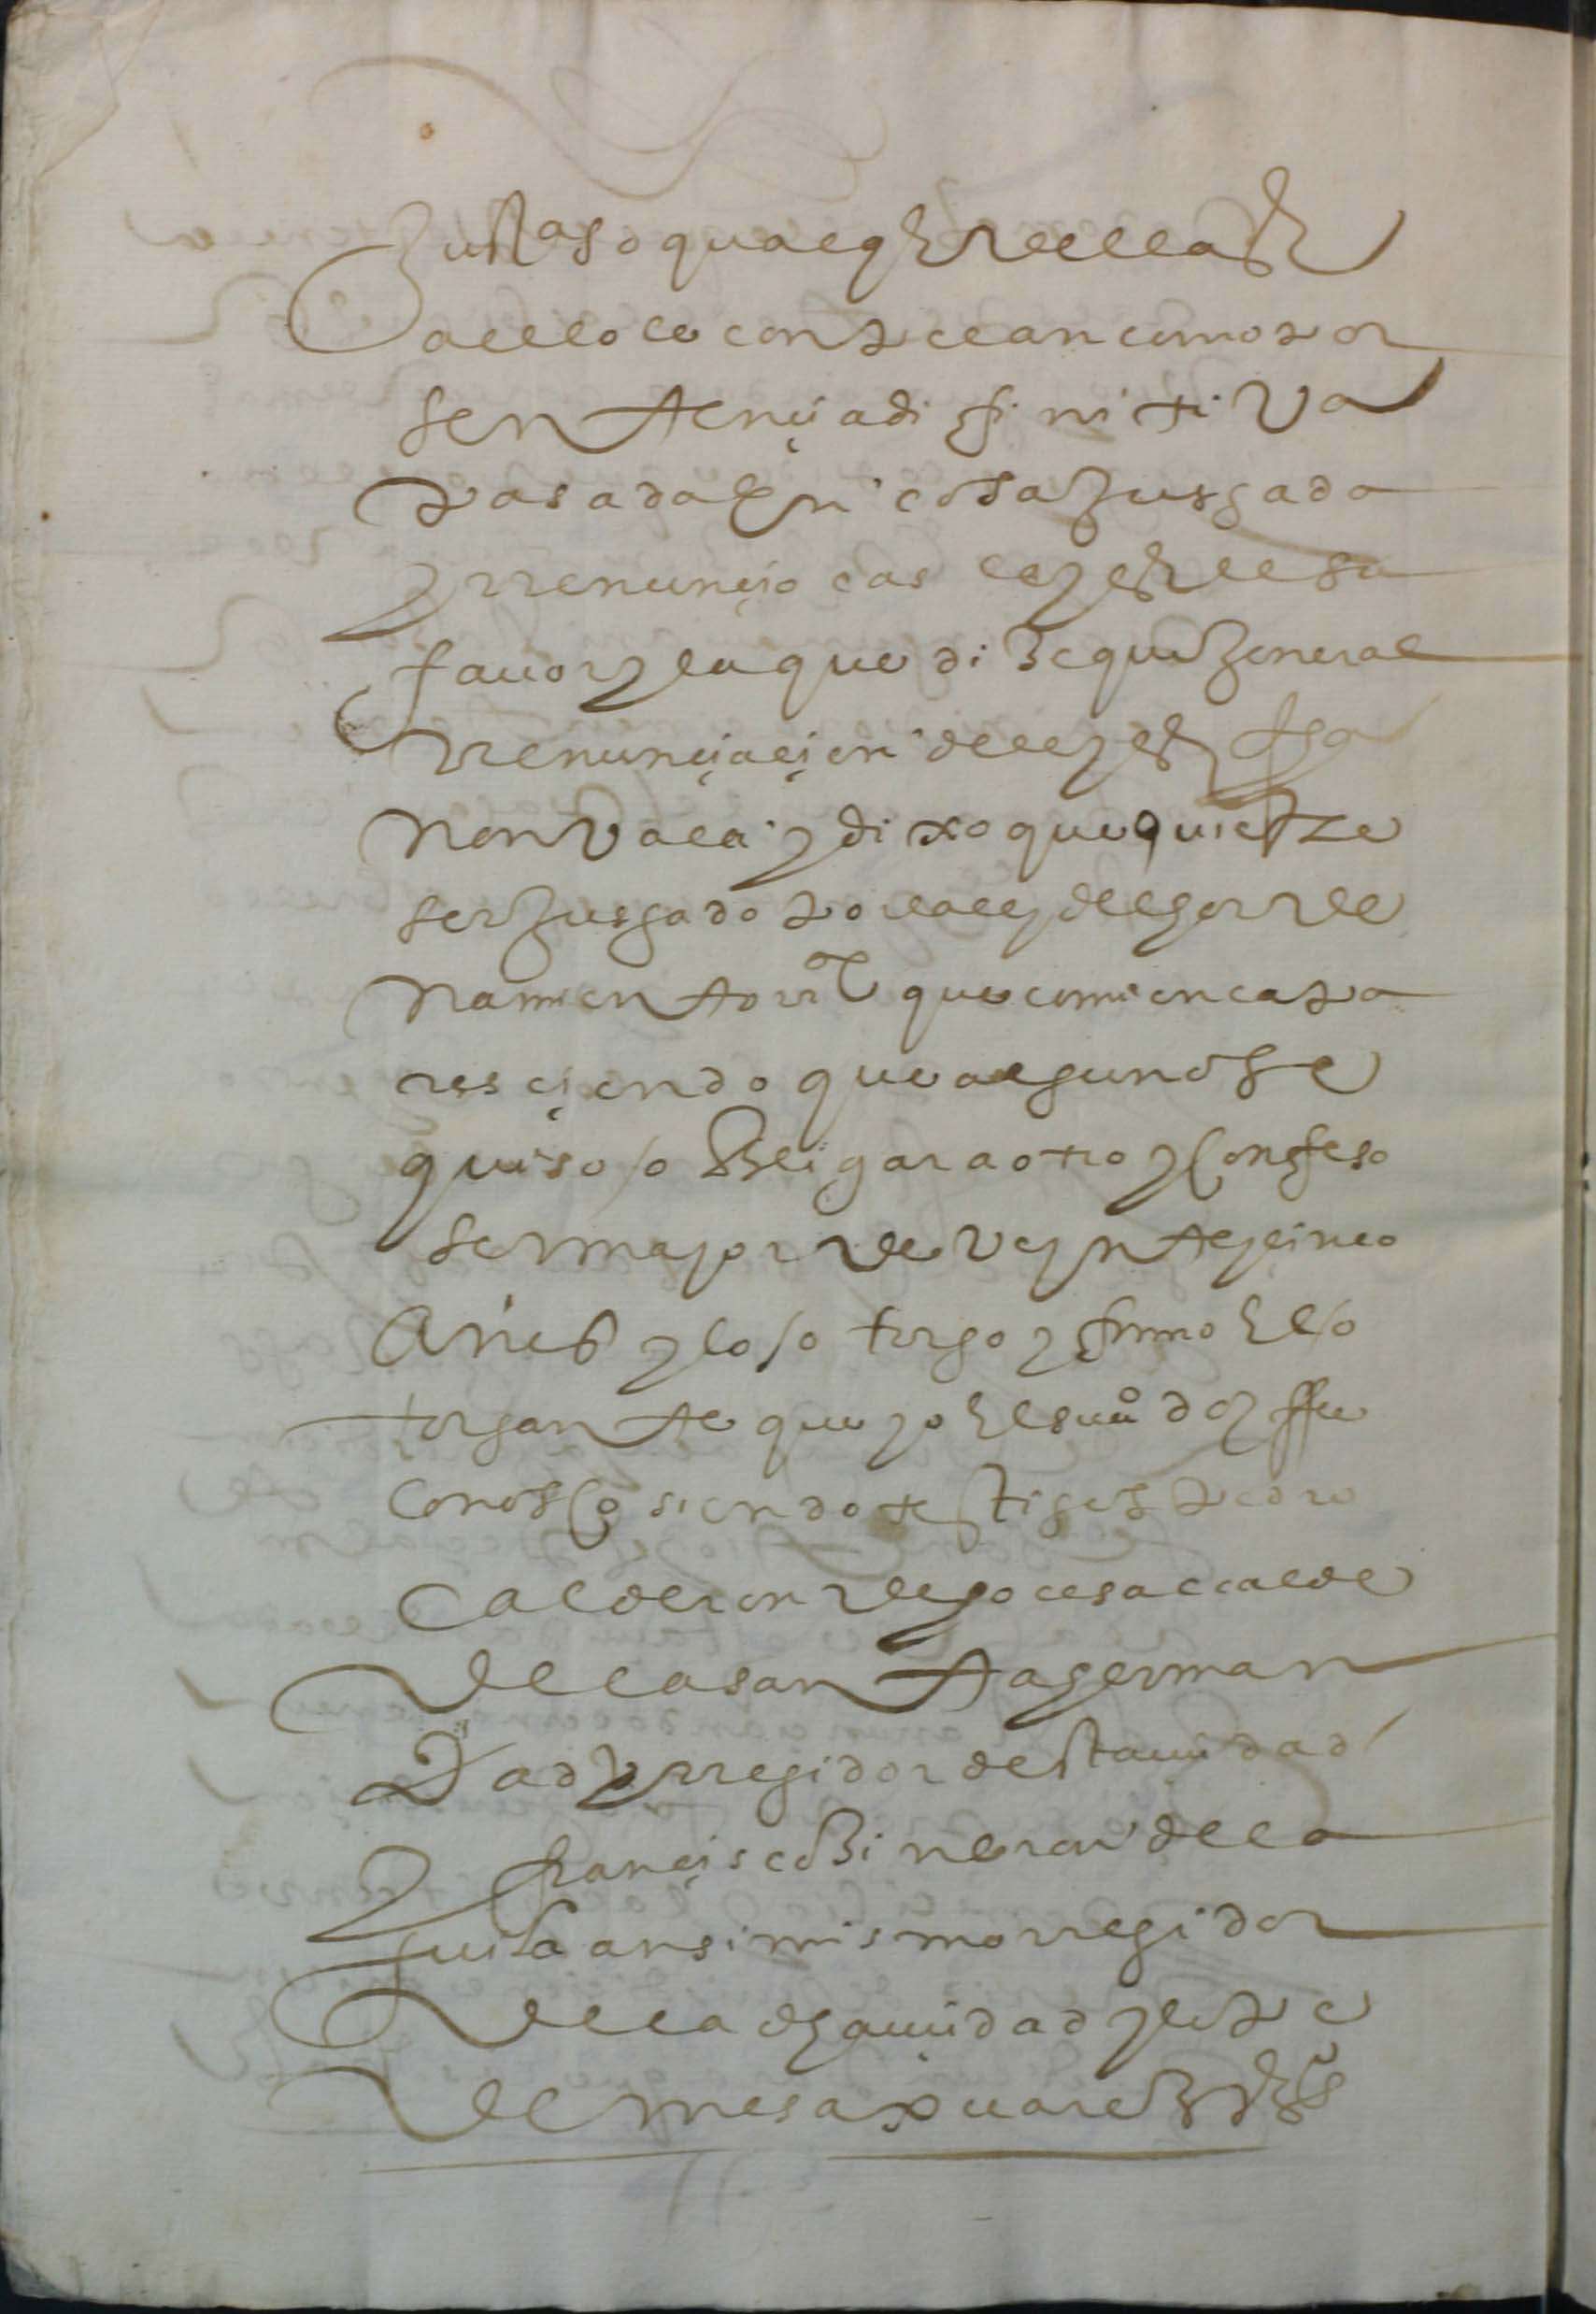 Justas o qualq̃r dellas
a ello le conpelan como por
sentençia difinitiva
pasada en cosa juzgada
y rrenunçio las leyes de su
favor y la que dize que general
rrenunçiaçion de leyes fha
non vala y dixo que quiere
ser juzgado por la ley del horde
namiento rrl que comiença pa
resçiendo que alguno se
quiso obligar a otro y confeso
ser mayor de veynte y çinco
años y lo otorgo y firmo el o
torgante que yo el ssno doy ffee
conosco siendo testigos pedro
calderon degolles alcalde
de la santa herman
dad y rregidor desta çiudad
y françisco bineron de la
quita ansimismo rregidor
de la dha çiudad y lope
de mesa xuarez vs